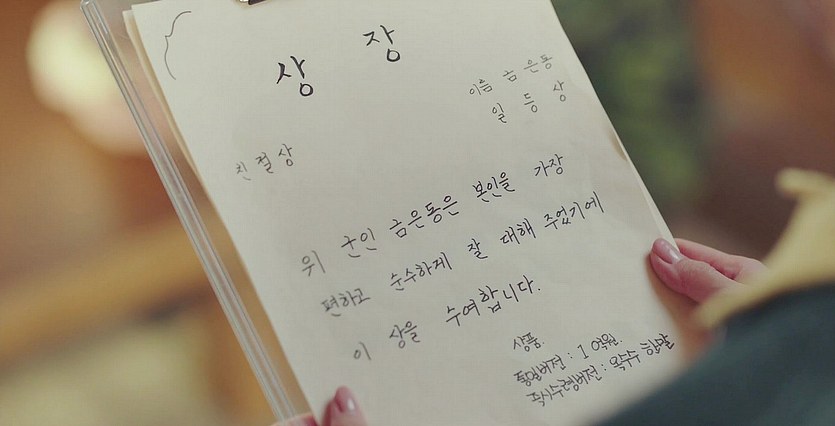 상 장
이름 금은동
일등상
친절상
위 군인 금은동은 본인을 가장
편하고 순수하게 잘 대해 주었기에
이 상을 수여합니다.
상품.
통일버전 : 1 억원.
즉시수령버전 : 옥수수 한 말